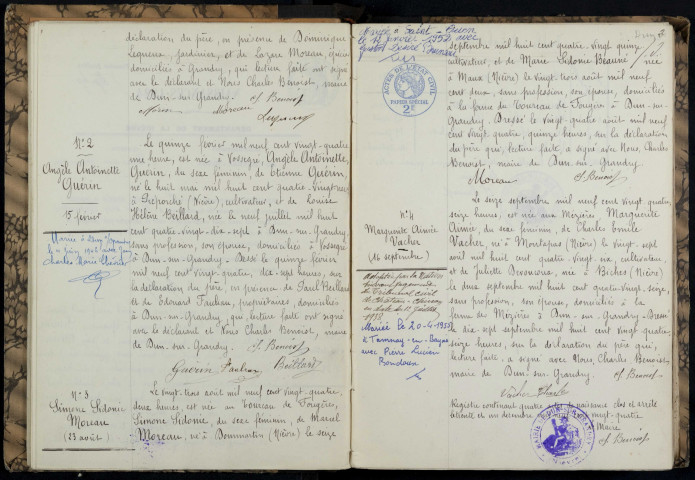 déclaration du père, en présence de Dominique
Lequeux, jardinier, et de Lazare Moreau,
domiciliés à Grandry, qui lecture faite ont signé
avec le déclarant et Nous Charles Benoist, maire
de Dun-sur-Grandry.
Moreau
N° 2
Angèle Antoinette
Guérin
15 février
Le quinze février mil neuf cent vingt-quatre
une heure, est née à Vossegre, Angèle Antoinette,
Guérin, du sexe féminin, de Etienne Guérin,
né le huit mai mil huit cent quatre-vingt
à Préporché (Nièvre), cultivateur, et de Louise
Hélène Beillard, née le neuf juillet mil huit
cent quatre-vingt-dix-sept à Dun-sur-Grandry,
sans profession, son épouse, domiciliés à
à Dun-sur-Grandry. Dressé le quinze février
mil neuf cent vingt-quatre, dix-sept heures, sur
la déclaration du père, en présence de Paul Beillard
et de Edouard Fauleau, propriétaires, domiciliés
à Dun-sur-Grandry, qui lecture faite ont signé
avec le déclarant et Nous Charles Benoist, maire
de Dun-sur-Grandry.
Guérin
Beillard
N° 3
Simone Sidonie
Moreau
(23 août)
Le vingt-trois août mil neuf cent vingt-quatre
deux heures, est née au Toureau de Fougères,
Simone Sidonie, du sexe féminin, de Marcel
Moreau, né à Dommartin (Nièvre) le seize
Mariée à Saint-
le janvier 1952 avec
ACTES DE L'ETAT CIVIL
PAPIER SPECIAL
2F
septembre mil huit cent quatre-vingt quinze
cultivateur, et de Marie Sidonie Beaune née
à Maux (Nièvre) le vingt-trois août mil neuf
cent deux, sans profession, son épouse, domiciliés
à la ferme du Toureau de Fougères à Dun-sur-
Grandry. Dressé le vingt-quatre août mil neuf
cent vingt-quatre, quinze heures, sur la déclaration
du père qui, lecture faite, a signé avec Nous, Charles
Benoist, maire de Dun-sur-Grandry.
Moreau
N° 4
Marguerite Aimée
Vacher
(16 septembre)
Le seize septembre mil neuf cent vingt-quatre,
seize heures, est née aux Mézières, Marguerite
Aimée, du sexe féminin, de Charles Emile
Vacher, né à Montapas (Nièvre) le vingt-sept
août mil huit cent quatre-vingt-, cultivateur,
et de Juliette, née à Biches (Nièvre)
le deux septembre mil huit cent quatre-vingt-seize,
sans profession, son épouse, domiciliés à la
ferme de Mézières à Dun-sur-Grandry. Dressé
le dix-sept septembre mil neuf cent vingt-quatre,
seize heures, sur la déclaration du père qui,
lecture faite, a signé avec Nous, Charles Benoist,
maire de Dun-sur-Grandry.
Adoptée par la Nation
suivant jugement
du Tribunal civil
de Château-Chinon
Mariée le 20-4-1953
à Tamnay-en-Bazois
avec Pierre Lucien
Bondoux
Registre contenant quatre actes de naissance clos et arrêté
le trente et un décembre mil neuf cent vingt-quatre
Maire